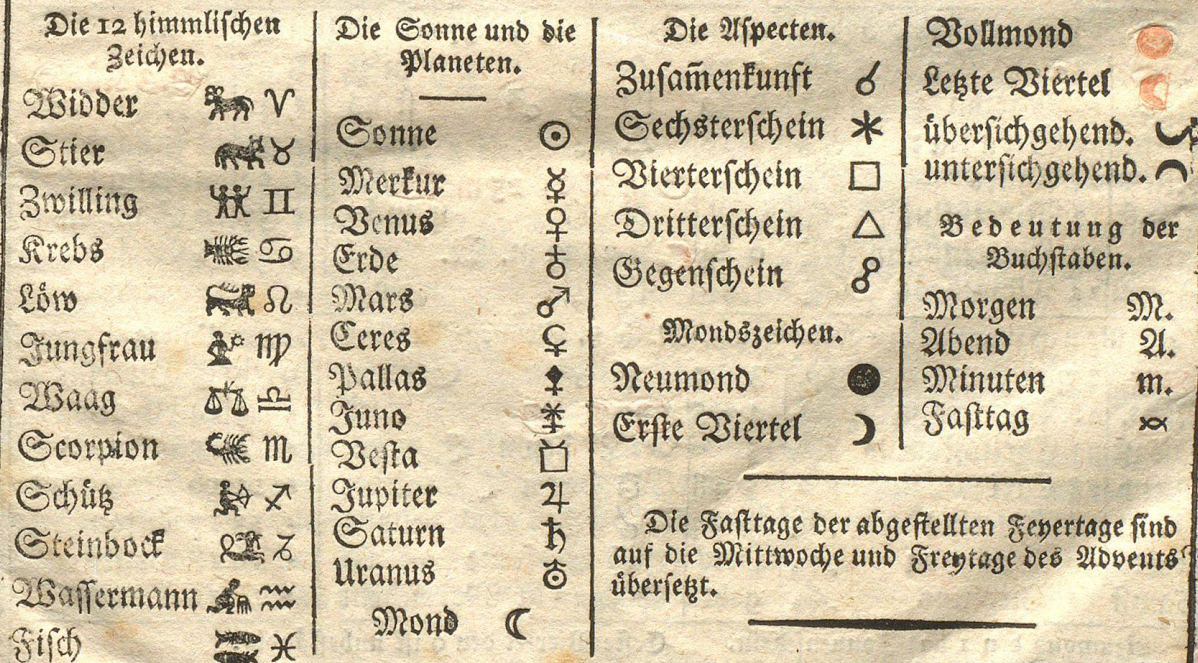 Die 12 himmlischen
Zeichen.
Widder ♈
Stier ♉
Zwilling ♊
Krebs ♋
Löw ♌
Jungfrau ♍
Waag ♎
Scorpion ♏
Schütz ♐
Steinbock ♑
Wassermann ♒
Fisch ♓
Die Sonne und die
Planeten.
Sonne ☉
Merkur ☿
Venus ♀
Erde ♁
Mars ♂
Ceres ⚳
Pallas ⚴
Juno ⚵
Vesta ⚶
Jupiter ♃
Saturn ♄
Uranus ⛢
Mond ☾
Die Aspecten.
Zusam̄enkunft ☌
Sechsterschein ⚹
Vierterschein □
Dritterschein △
Gegenschein ☍
Mondszeichen.
Neumond ●
Erste Viertel ☽
Vollmond
Letzte Viertel
übersichgehend.
untersichgehend.
Bedeutung der
Buchstaben.
Morgen M.
Abend A.
Minuten m.
Fasttag
Die Fasttage der abgestellten Feyertage sind
auf die Mittwoche und Freytage des Advents
übersetzt.